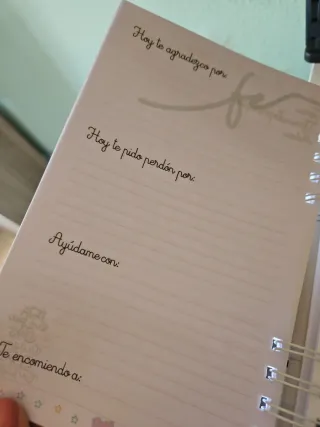 Hoy te agradezco por:
fe
Hoy te pido perdón por:
Ayúdame con:
Te encomiendo a: